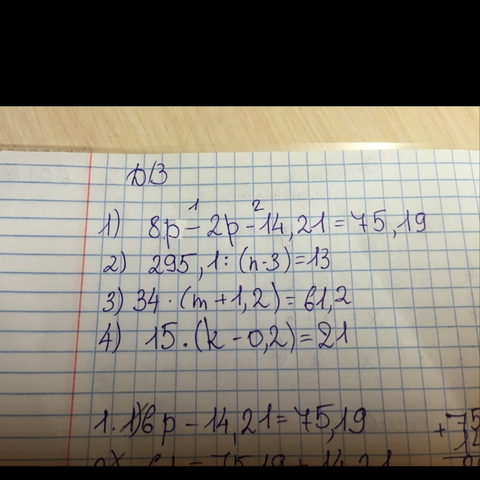 Д/З
1) 8p - 2p - 14,21 = 75,19
1 2
2) 295,1 : (n-3) = 13
3) 34 · (m + 1,2) = 61,2
4) 15 · (k - 0,2) = 21
1. 1) 6p - 14,21 = 75,19
+75